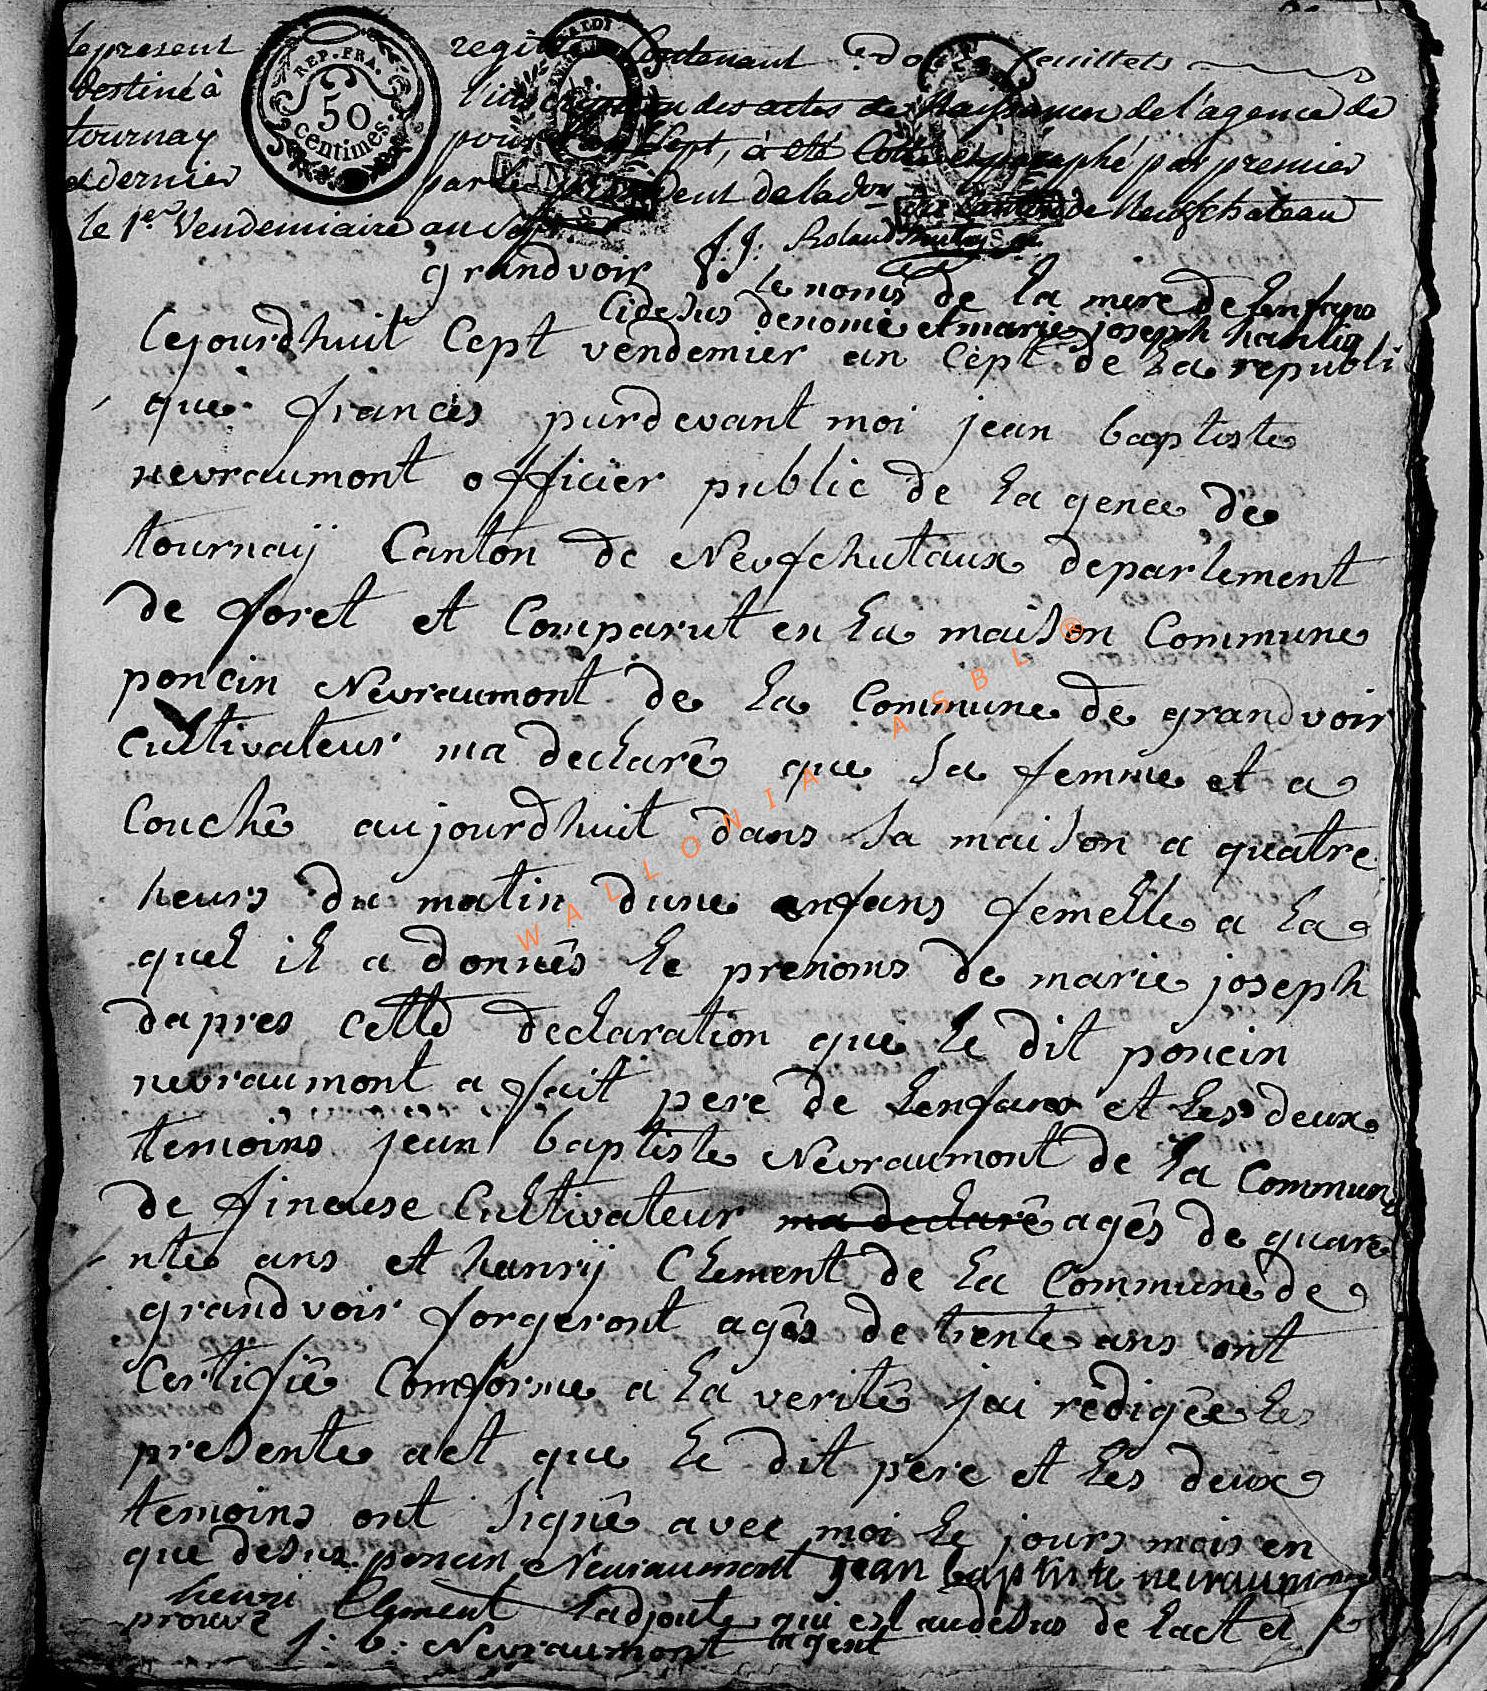 le present registre Contenant douze feuillets
destiné à l'inscription des actes de Naissances de l'agence de
tournay pour l'an Sept, à été Coté et paraphé par premier
et dernier par le président de la don du Canton de Neufchateau
le 1er Vendemiaire an Sept.
J. J. Roland
REP. FRA.
50
centimes.
grandvoir
le noms de la mere de lenfans
Cidesus denomé et marie joseph
Cejourdhuit Cept vendemier an Cept de la republi
que frances pardevant moi jean baptiste
nevraumont officier public de la gence de
tournaÿ Canton de Neufchutaux departement
de foret et Comparut en la maison Commune
poncin Nevraumont de la Commune de grandvoir
Cultivateur ma declarê que sa femme et a
Couchê aujourdhuit dans sa maison a quatre
heurs du matin dune enfans femelle a la
quel il a donnês le prenoms de marie joseph
dapres cette declaration que le dit poncin
nevraumont a fait pere de lenfans et les deux
temoins jean baptiste Nevraumont de la Commune
de fineuse Cultivateur ma declarê agês de quare
nte ans et hanrÿ Clement de la Commune de
grandvoir forgeront agês de trente ans ont
Certifiê Comforme a la veritê jai rêdigêe le
presente act que le dit pere et les deux
temoins ont signê avec moi le jours mois en
que desus. poncin Nevraumont jean baptiste nevraumont
henri Clement ladjoute qui est audesus de lact et
prouvé
j: b: Nevraumont agent
WALLONIA ASBL ®